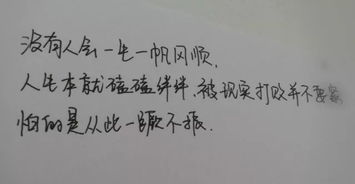 没有人会一生一帆风顺，
人生本就磕磕绊绊、被现实打败并不要紧
怕的是从此一蹶不振。